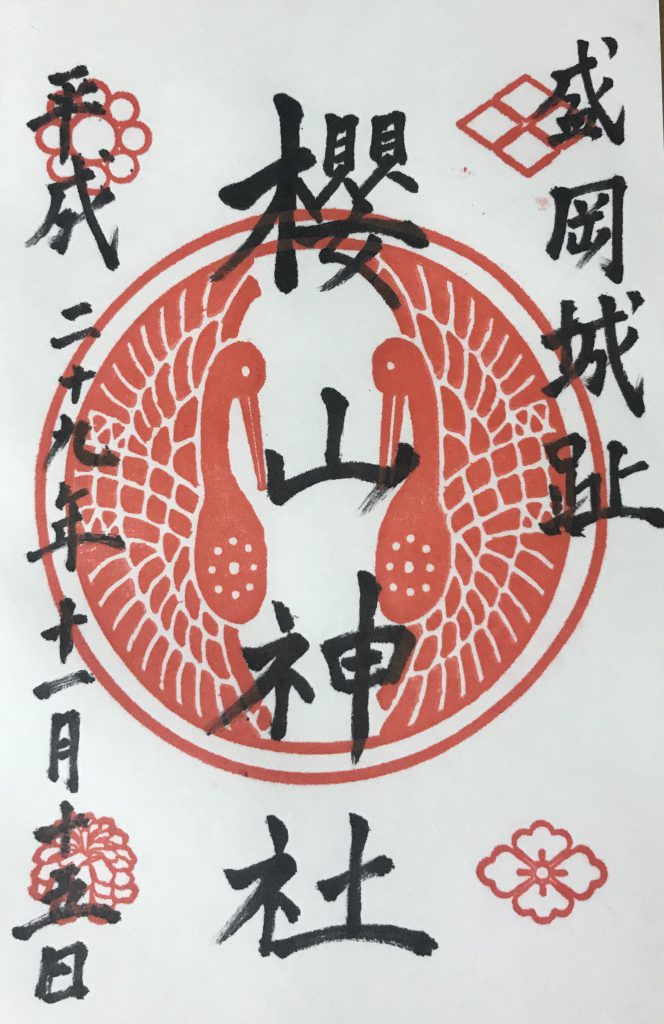 盛岡城趾
櫻山神社
平成二十九年十一月十五日